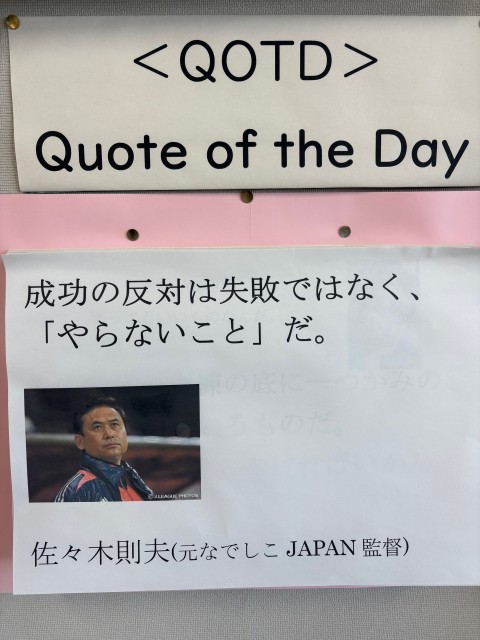 <QOTD>
Quote of the Day
成功の反対は失敗ではなく、
「やらないこと」だ。
© J.LEAGUE PHOTOS
佐々木則夫(元なでしこ JAPAN 監督)